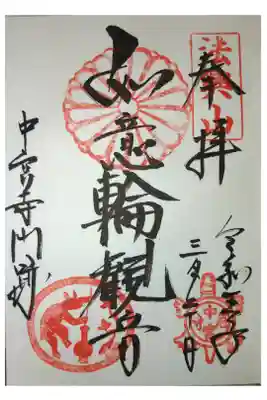 奉拝
令和二年
三月二十日
如意輪観音
中宮寺門跡